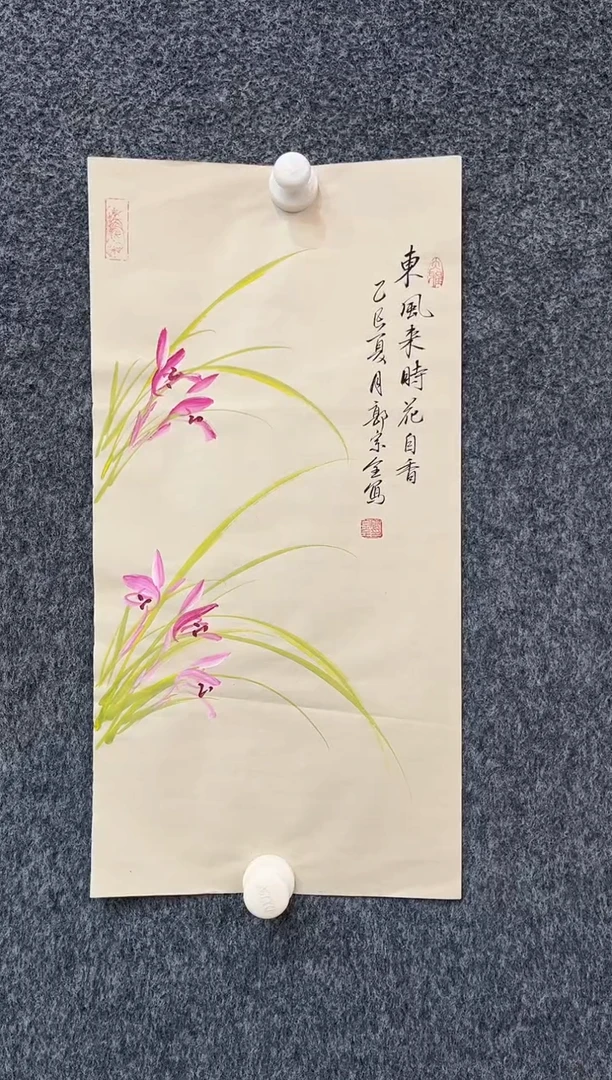 東風来時花自香
乙巳夏月郭宗全寫